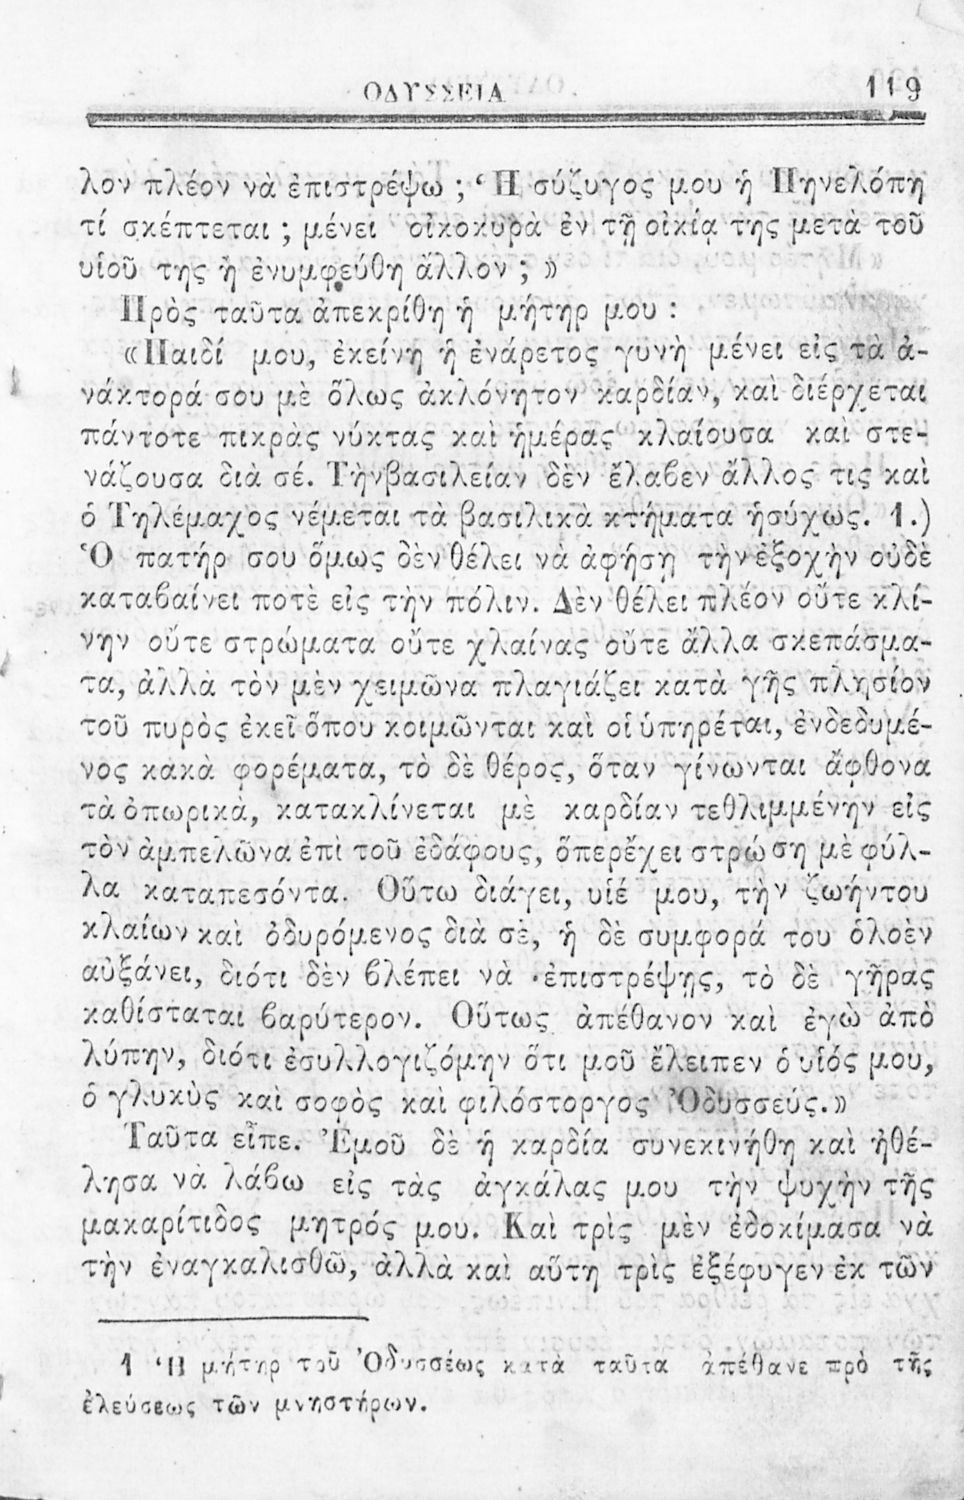 ΟΔΥΣΣΕΙΑ 119
λον πλέον νὰ ἐπιστρέψω ; ‘Η σύζυγος μου ἡ Πηνελόπη
τί σκέπτεται ; μένει οἰκοκυρὰ ἐν τῇ οἰκίᾳ της μετὰ τοῦ
υἱοῦ της ἢ ἐνυμφεύθη ἄλλον ; »
Πρὸς ταῦτα ἀπεκρίθη ἡ μήτηρ μου :
«Παιδί μου, ἐκείνη ἡ ἐνάρετος γυνὴ μένει εἰς τὰ ἀ-
νάκτορά σου μὲ ὅλως ἀκλόνητον καρδίαν, καὶ διέρχεται
πάντοτε πικρὰς νύκτας καὶ ἡμέρας κλαίουσα καὶ στε-
νάζουσα διὰ σέ. Τὴνβασιλείαν δὲν ἔλαβεν ἄλλος τις καὶ
ὁ Τηλέμαχος νέμεται τὰ βασιλικὰ κτήματα ἡσύχως. 1.)
Ὁ πατήρ σου ὅμως δὲν θέλει νὰ ἀφήσῃ τὴν ἐξοχὴν οὐδὲ
καταβαίνει ποτὲ εἰς τὴν πόλιν. Δὲν θέλει πλέον οὔτε κλί-
νην οὔτε στρώματα οὔτε χλαίνας οὔτε ἄλλα σκεπάσμα-
τα, ἀλλὰ τὸν μὲν χειμῶνα πλαγιάζει κατὰ γῆς πλησίον
τοῦ πυρὸς ἐκεῖ ὅπου κοιμῶνται καὶ οἱ ὑπηρέται, ἐνδεδυμέ-
νος κακὰ φορέματα, τὸ δὲ θέρος, ὅταν γίνωνται ἄφθονα
τὰ ὀπωρικὰ, κατακλίνεται μὲ καρδίαν τεθλιμμένην εἰς
τὸν ἀμπελῶνα ἐπὶ τοῦ ἐδάφους, ὅπερἔχει στρώση μὲ φύλ-
λα καταπεσόντα. Οὕτω διάγει, υἱέ μου, τὴν ζωήντου
κλαίων καὶ ὀδυρόμενος διὰ σὲ, ἡ δὲ συμφορά του ὁλοὲν
αὐξάνει, διότι δὲν βλέπει νὰ ἐπιστρέψῃς, τὸ δὲ γῆρας
καθίσταται βαρύτερον. Οὕτως ἀπέθανον καὶ ἐγὼ ἀπὸ
λύπην, διότι ἐσυλλογιζόμην ὅτι μοῦ ἔλειπεν ὁ υἱός μου,
ὁ γλυκὺς καὶ σοφὸς καὶ φιλόστοργος Ὀδυσσεύς.»
Ταῦτα εἶπε. Ἐμοῦ δὲ ἡ καρδία συνεκινήθη καὶ ἠθέ-
λησα νὰ λάβω εἰς τὰς ἀγκάλας μου τὴν ψυχὴν τῆς
μακαρίτιδος μητρός μου. Καὶ τρὶς μὲν ἐδοκίμασα νὰ
τὴν ἐναγκαλισθῶ, ἀλλὰ καὶ αὕτη τρὶς ἐξέφυγεν ἐκ τῶν
1 ‘Η μήτηρ τοῦ Ὀδυσσέως κατὰ ταῦτα ἀπέθανε πρὸ τῆς
ἐλεύσεως τῶν μνηστήρων.